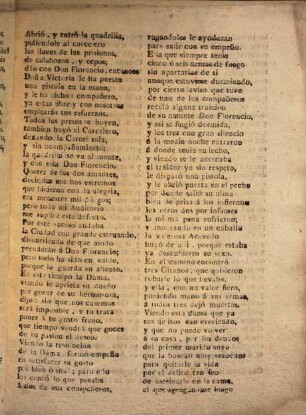 Abrió, y entró la quadrilla,
pidiendole al carcelero
las llaves de las prisiones,
de calabozos, y cepos;
dió con Don Florencio, entonces
Doña Victoria le ha puesto
una pistola en la mano,
y le ha dicho: compañero,
ya estás libre y con nosotros
emplearás tus esfuerzos.
Todos los presos se huyen,
tambien huyó el Carcelero,
dexando la Carcel sola,
y sin acompañamiento:
la quadrilla se va al monte,
y con ella Don Florencio.
Querer de sus dos amantes,
deciros los mil extremos
que hicieron con la alegria,
era menester mil pliegos;
pero todo mi Auditorio
me suplirá este defecto.
Por este verso andaba
la Ciudad con grande estruendo,
discurriendo de que modo
prenderán á Don Florencio;
pero todo ha sido en valde,
porque la guarda su aliento.
En este tiempo la Dama
viendo le aprieta su dueño
por gozar de su hermosura,
dijo: sin que nos casemos
será imposible, y tu trata
poner á tu gusto freno,
que tiempo vendrá que goces
de tu pasion el deseo.
Viendo la resolucion
de la Dama, formó empeño
en satisfacer su gusto
por bien ó mal; para ello
les contó lo que pasaba
á dos de sus compañeros,
rogandolos le ayudaran
para salir con su empeño.
Ella que siempre tenia
cinco ó seis armas de fuego
sin apartarlas de sí
aunque estuviese durmiendo,
por cierto aviso que tuvo
de uno de los compañeros
receló alguna traicion
de su amante Don Florencio,
y así se fingió dormida,
y los tres con gran silencio
á la media noche entraron
á donde tenia su lecho,
y viendo se le acercaba
el traidor ya sin respeto,
le disparó una pistola
y le abrió puerta en el pecho
por donde salió su alma
bien de prisa á los infiernos
los otros dos por infames
la misma pena sufrieron;
y montando en un caballo
la valerosa Acevedo
huyó de allí, porque estaba
ya descubierto su sexo.
En el camino encontró
tres Gitanos, que quisieron
robarle lo que llevaba,
y ella, con un valor fiero,
poniendo mano á sus armas,
á todos tres dejó muertos.
Viendo esta dama que ya
sus delitos van creciendo,
y que no puede volver
á su casa, por los deudos
del primer marido suyo
que la buscan muy resueltos
para quitarle la vida
por el delito tan feo
de asesinarle en la cama,
al que agregan que luego